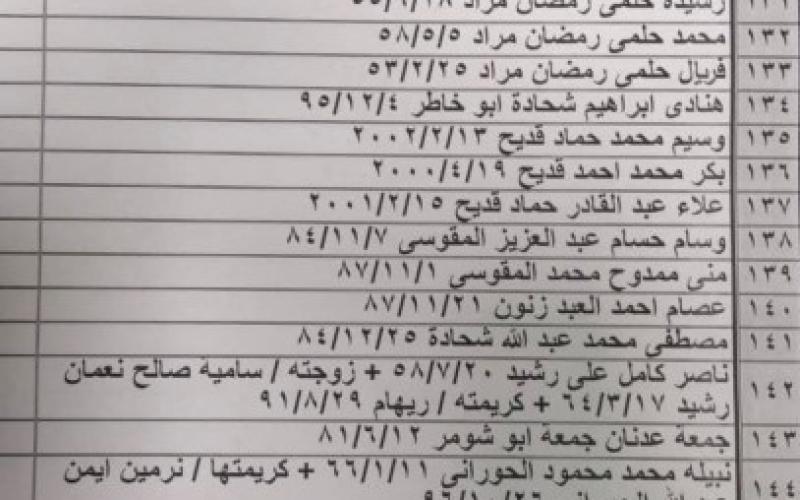 ١٣١ رشيدة حلمى رمضان مراد
١٣٢ محمد حلمى رمضان مراد ٥٨/٥/٥
١٣٣ فريال حلمى رمضان مراد ٥٣/٢/٢٥
١٣٤ هنادى ابراهيم شحادة ابو خاطر ٩٥/١٢/٤
١٣٥ وسيم محمد حماد قديح ٢٠٠٢/٢/١٣
١٣٦ بكر محمد احمد قديح ٢٠٠٠/٤/١٩
١٣٧ علاء عبد القادر حماد قديح ٢٠٠١/٢/١٥
١٣٨ وسام حسام عبد العزيز المقوسى ٨٤/١١/٧
١٣٩ منى ممدوح محمد المقوسى ٨٧/١١/١
١٤٠ عصام احمد العبد زنون ٨٧/١١/٢١
١٤١ مصطفى محمد عبد الله شحادة ٨٤/١٢/٢٥
١٤٢ ناصر كامل على رشيد ٥٨/٧/٢٠ + زوجته / سامية صالح نعمان
رشيد ٦٤/٣/١٧ + كريمته / ريهام ٩١/٨/٢٩
١٤٣ جمعة عدنان جمعة ابو شومر ٨١/٦/١٢
١٤٤ نبيله محمد محمود الحورانى ٦٦/١/١١ + كريمتها / نرمين ايمن